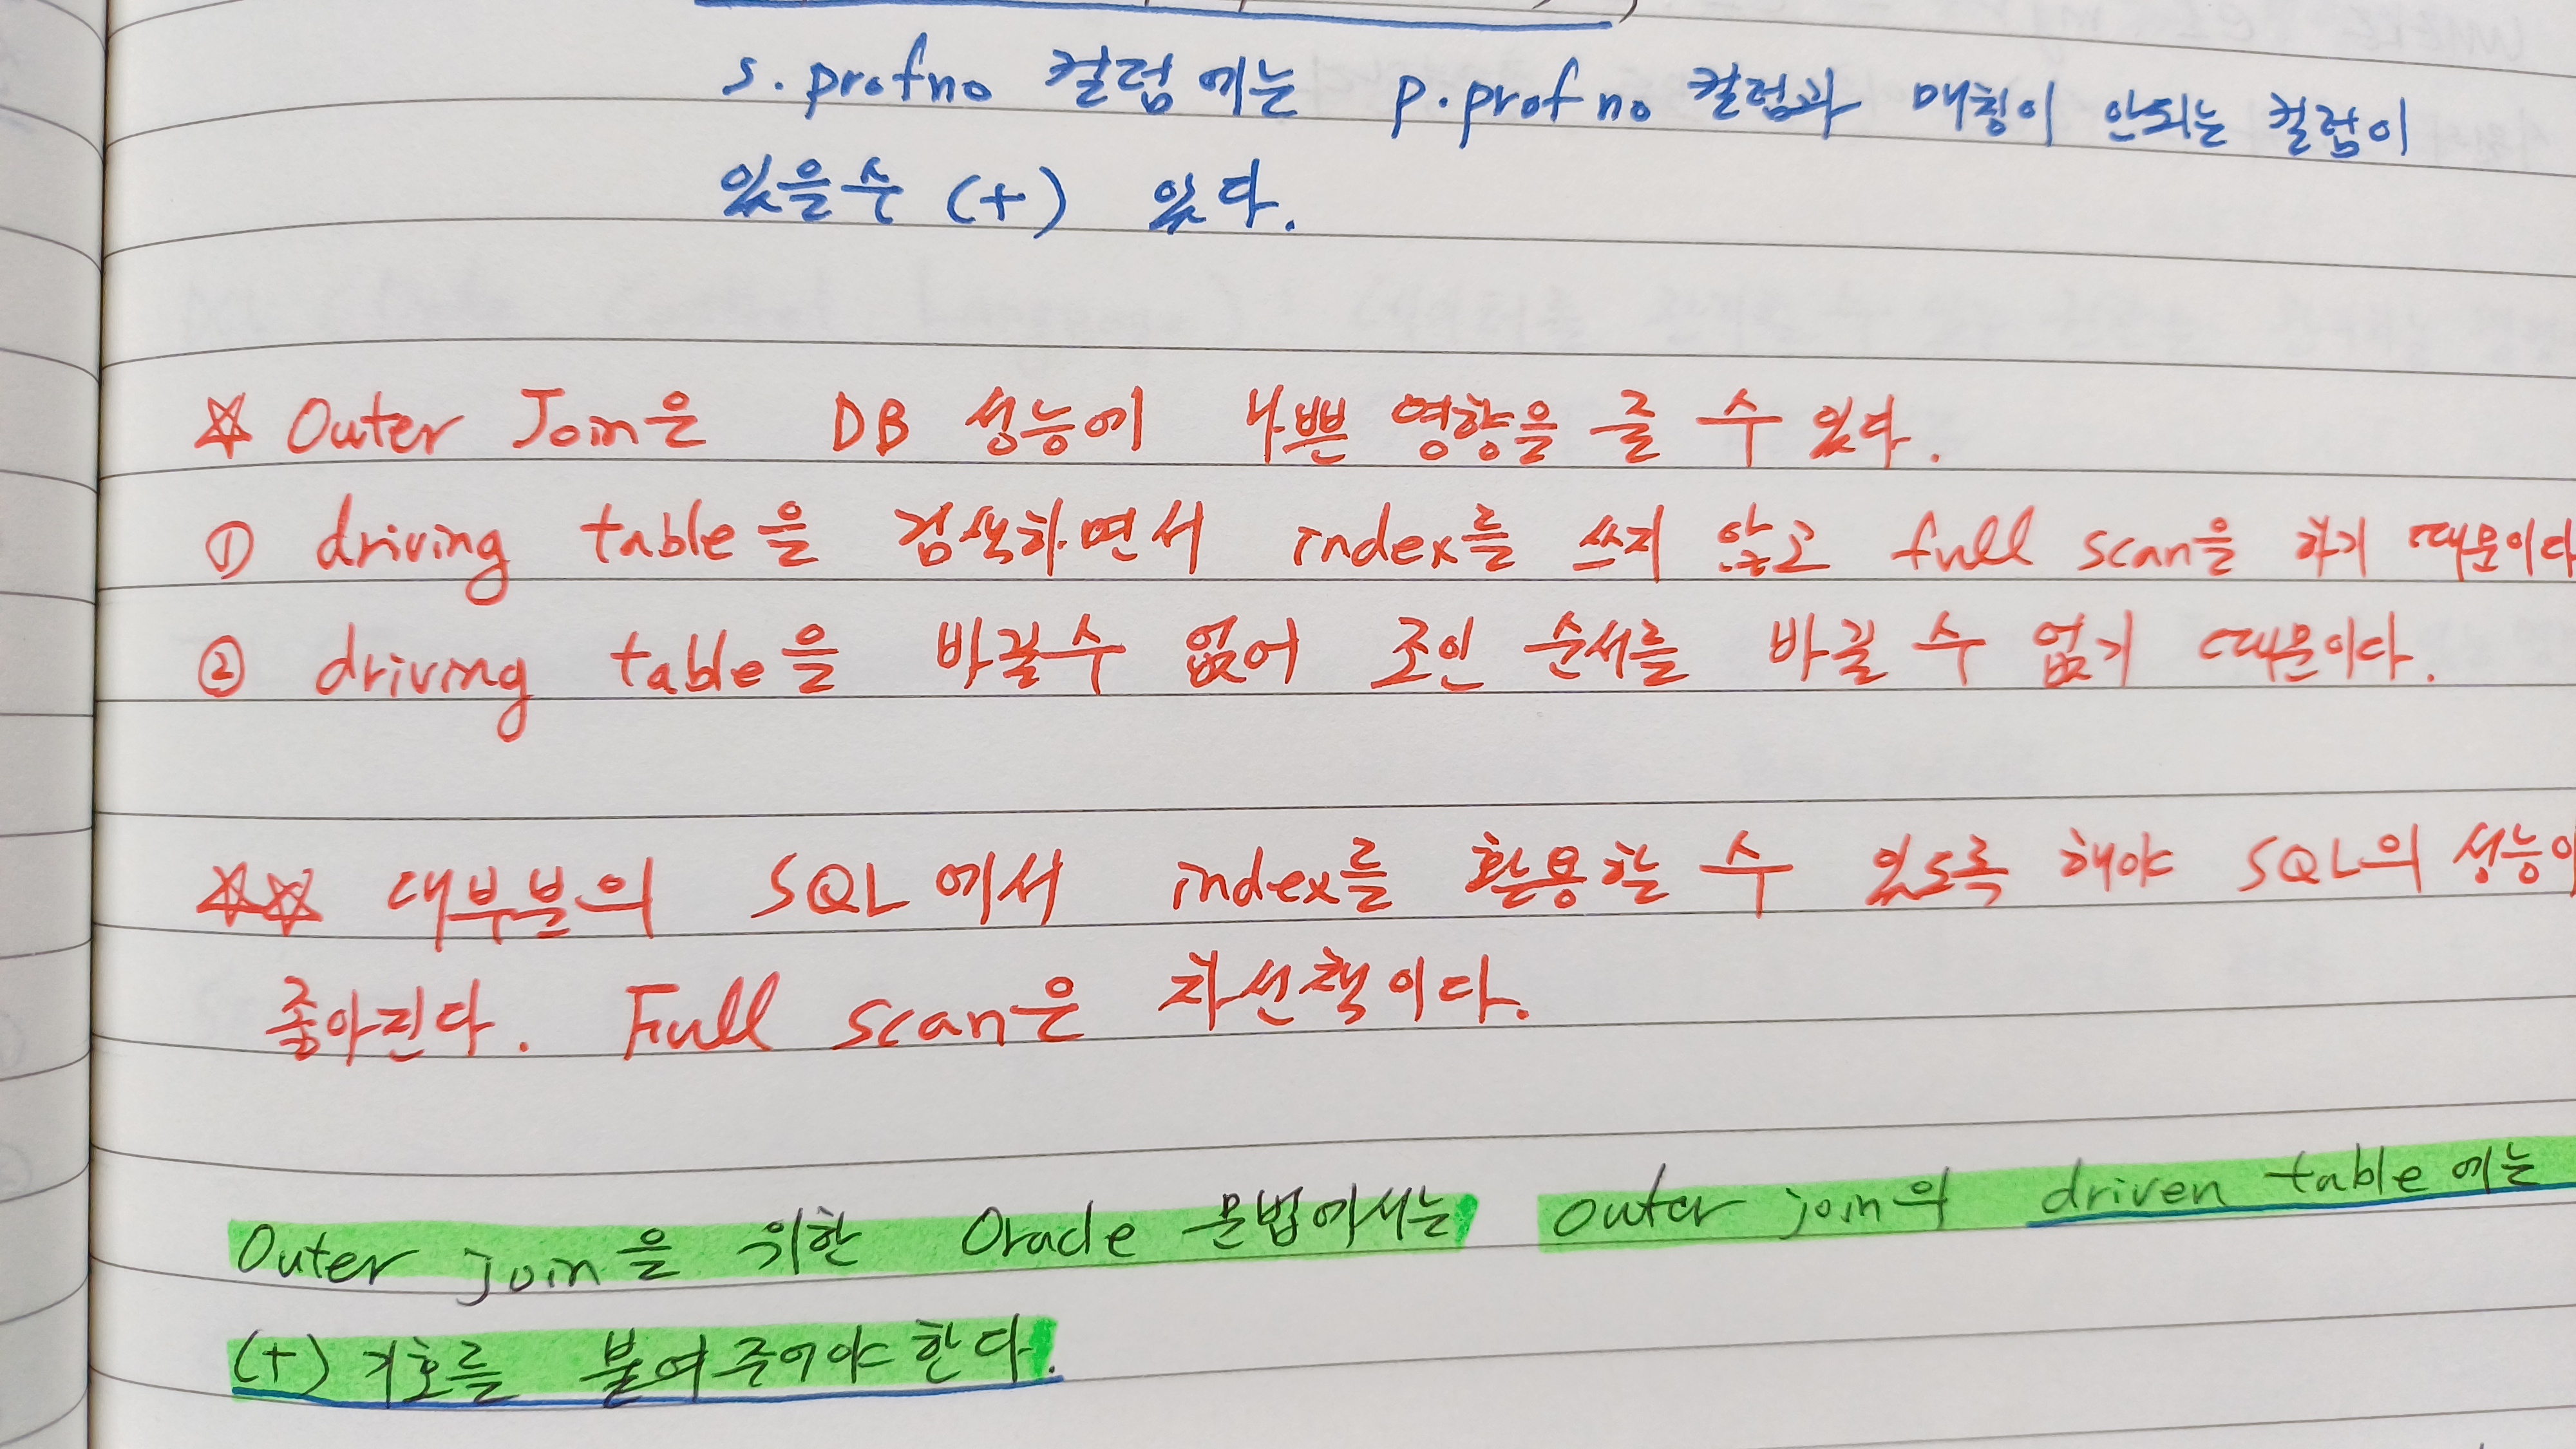 s.profno 컬럼에는 p.profno 컬럼과 매칭이 안되는 컬럼이
있을수 (+) 있다.
☆ Outer Join은 DB 성능에 나쁜 영향을 줄 수 있다.
① driving table을 검색하면서 index를 쓰지 않고 full scan을 하기 때문이다
② driving table을 바꿀수 없어 조인 순서를 바꿀 수 없기 때문이다.
☆☆ 대부분의 SQL에서 index를 활용할 수 있도록 해야 SQL의 성능이
좋아진다. Full scan은 차선책이다.
Outer join을 위한 Oracle 문법에서는 outer join의 driven table에는
(+)기호를 붙여주어야한다.